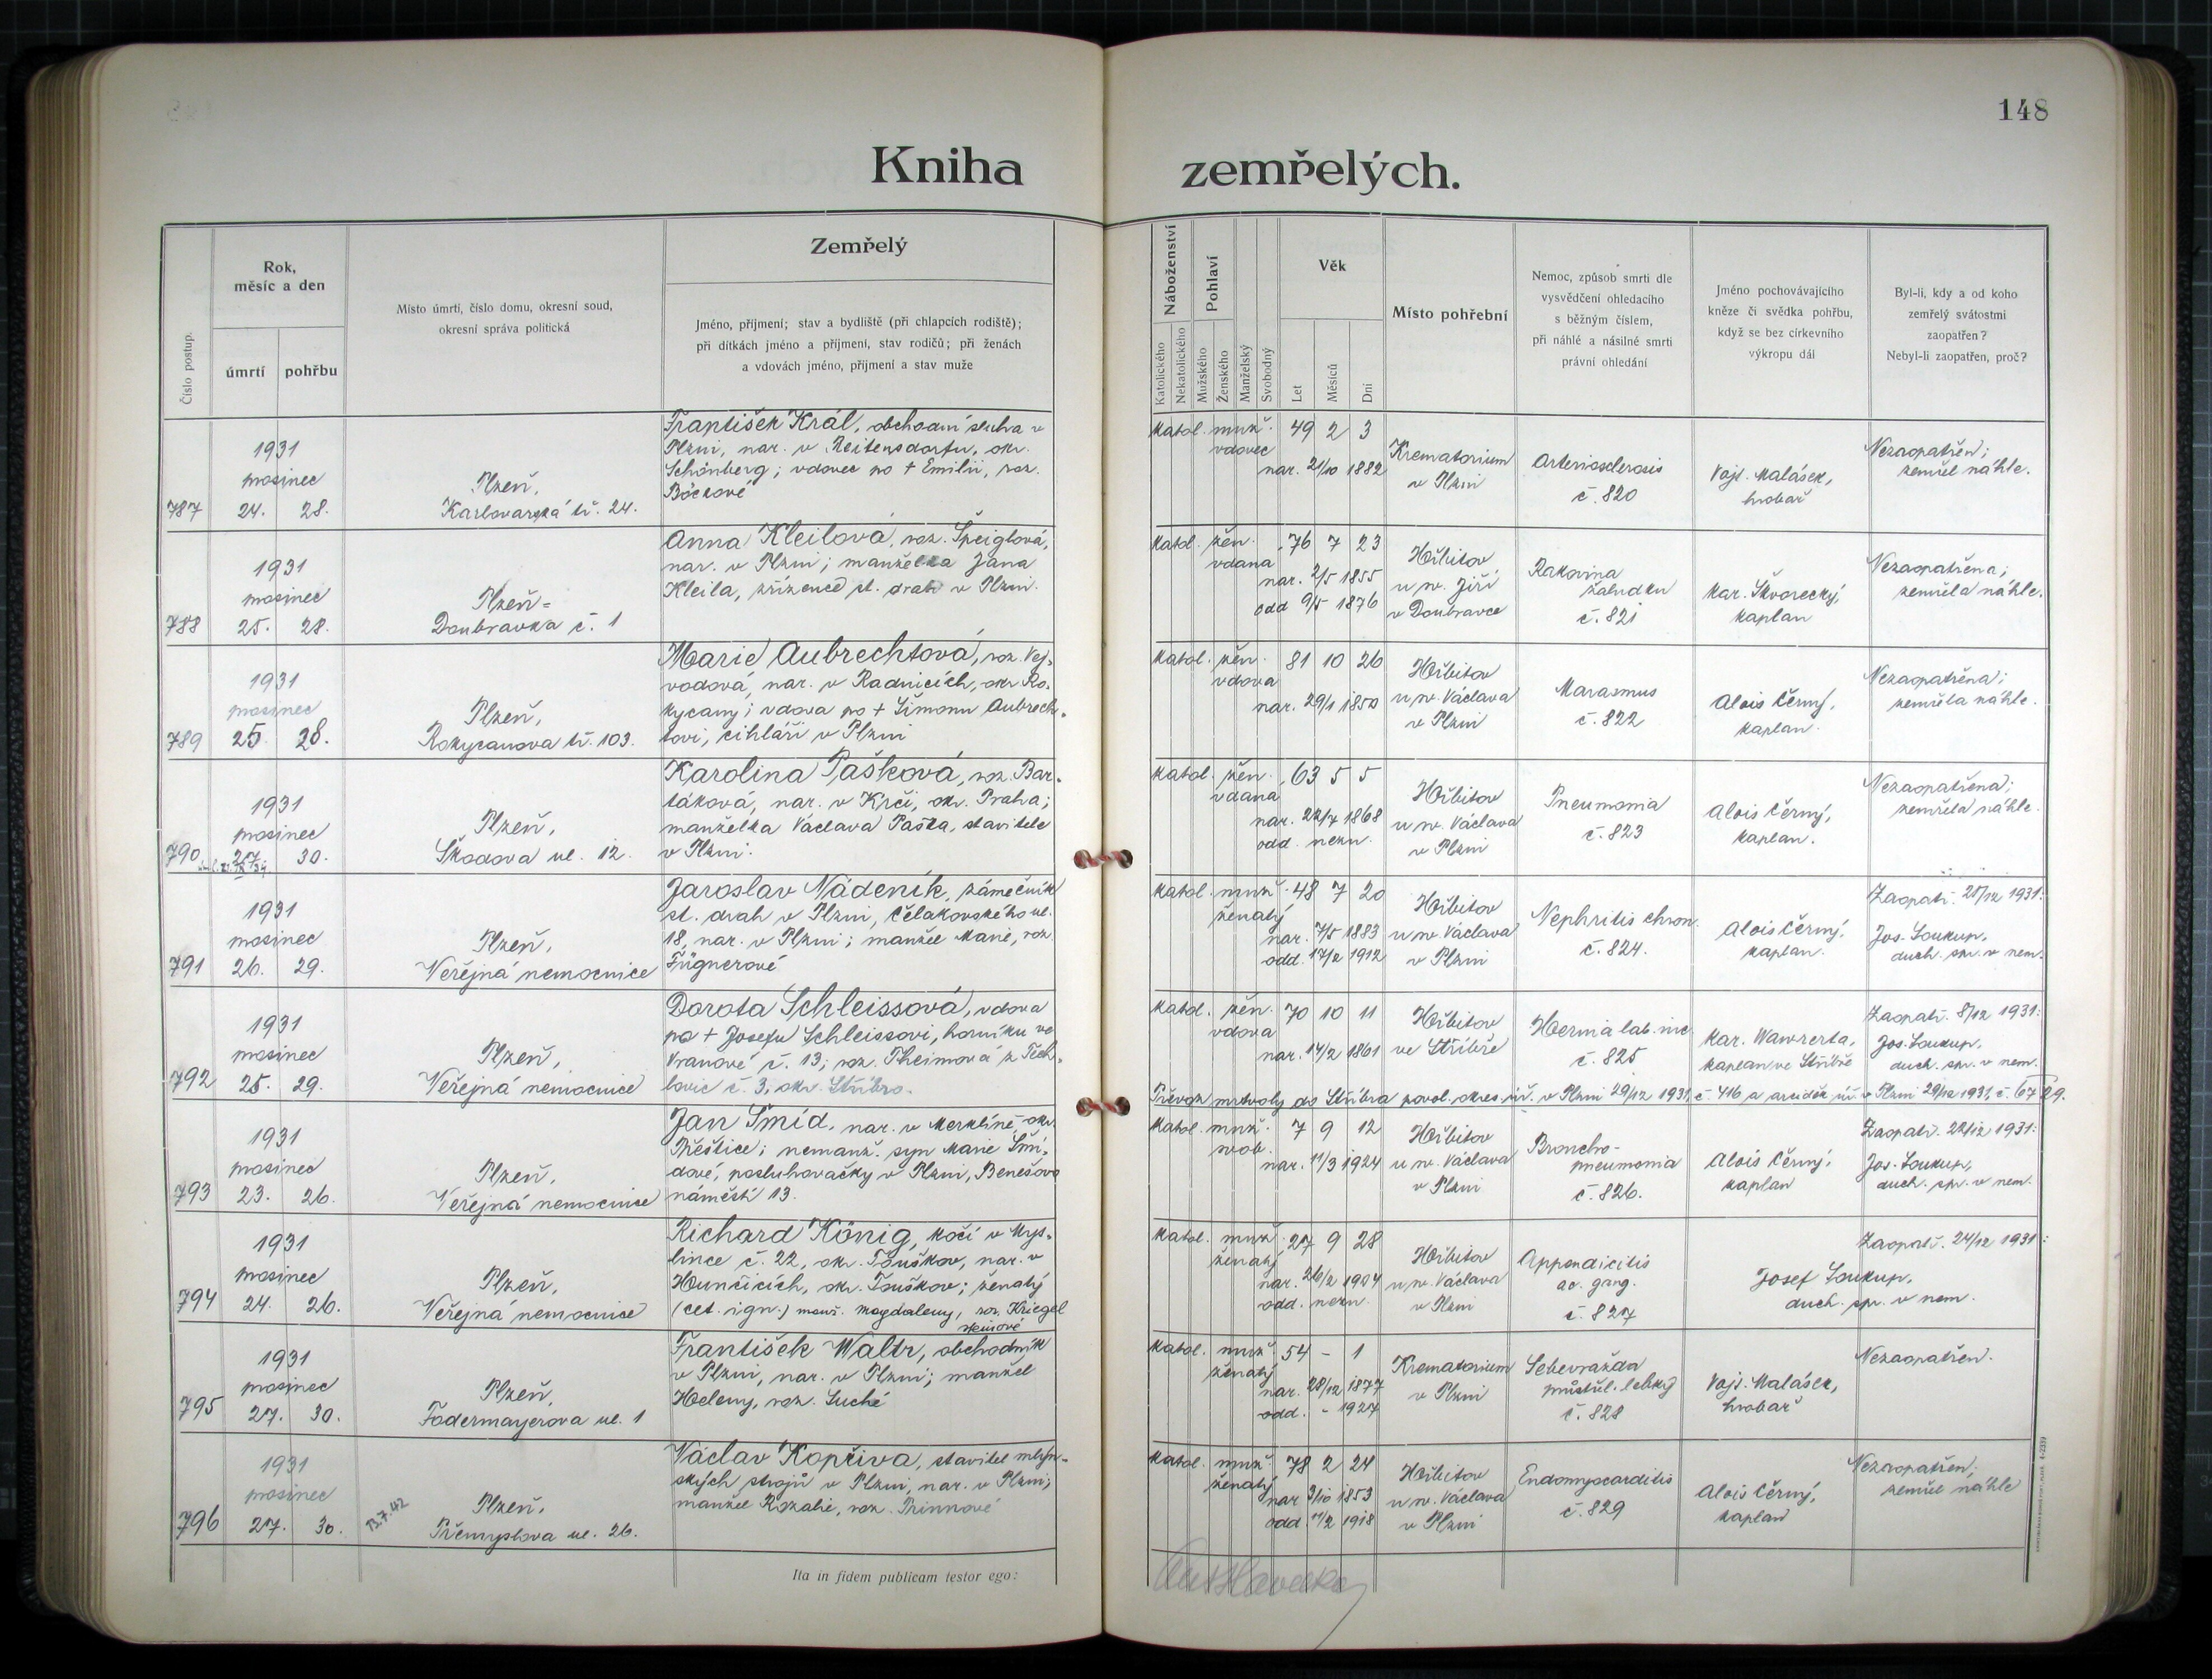 148
Kniha zemřelých.
Číslo postup.
Rok,
měsíc a den
úmrtí
pohřbu
Místo úmrtí, číslo domu, okresní soud,
okresní správa politická
Zemřelý
Jméno, příjmení; stav a bydliště (při chlapcích rodiště);
při dítkách jméno a příjmení, stav rodičů; při ženách
a vdovách jméno, příjmení a stav muže
Náboženství
Katolického
Nekatolického
Pohlaví
Mužského
Ženského
Manželský
Svobodný
Věk
Let
Měsíců
Dní
Místo pohřební
Nemoc, způsob smrti dle
vysvědčení ohledacího
s běžným číslem,
při náhlé a násilné smrti
právní ohledání
Jméno pochovávajícího
kněze či svědka pohřbu,
když se bez církevního
výkropu dál
Byl-li, kdy a od koho
zemřelý svátostmi
zaopatřen?
Nebyl-li zaopatřen, proč?
787
1931
prosinec
24. 28.
Plzeň,
Karlovarská tř. 24.
František Král, obchodní sluha v
Plzni, nar. v Reitensdorfu, okr.
Schönberg; vdovec po + Emilii, roz.
Böckové
katol. muž. 49 2 3
vdovec
nar. 21/10 1882
Krematorium
v Plzni
Arteriosclerosis
č. 820
Vojt. Malásek,
hrobař
Nezaopatřen;
zemřel náhle.
788
1931
prosinec
25. 28.
Plzeň-
Doubravka č. 1
Anna Kleilová, roz. Špeiglová,
nar. v Plzni; manželka Jana
Kleila, zřízence st. drah v Plzni.
katol. žen. 76 7 23
vdana
nar. 2/5 1855
odd 9/5 1876
Hřbitov
u sv. Jiří
v Doubravce
Rakovina
žaludku
č. 821
Kar. Škvorecký,
kaplan
Nezaopatřena;
zemřela náhle.
789
1931
prosinec
25. 28.
Plzeň,
Rokycanova tř. 103.
Marie Aubrechtová, roz. Vej-
vodová, nar. v Radnicích, okr. Ro-
kycany; vdova po + Šimonu Aubrech-
tovi, cihláři v Plzni
katol. žen. 81 10 26
vdova
nar. 29/1 1850
Hřbitov
u sv. Václava
v Plzni
Marasmus
č. 822
Alois Černý,
kaplan.
Nezaopatřena;
zemřela náhle.
790
1931
prosinec
27. 30.
Plzeň,
Škodova ul. 12.
Karolina Pašková, roz. Bar-
táková, nar. v Krči, okr. Praha;
manželka Václava Paška, stavitele
v Plzni.
katol. žen. 63 5 5
vdana
nar. 22/7 1868
odd. nezn.
Hřbitov
u sv. Václava
v Plzni
Pneumonia
č. 823
Alois Černý,
kaplan.
Nezaopatřena;
zemřela náhle.
791
1931
prosinec
26. 29.
Plzeň,
Veřejná nemocnice
Jaroslav Nádeník, zámečník
st. drah v Plzni, Čelakovského ul.
18, nar. v Plzni; manžel Marie, roz.
Fügnerové
katol. muž. 48 7 20
ženatý
nar. 7/5 1883
odd. 17/2 1912
Hřbitov
u sv. Václava
v Plzni
Nephritis chron.
č. 824.
Alois Černý,
kaplan.
Zaopatř. 25/12 1931:
Jos. Soukup,
duch. spr. v nem.
792
1931
prosinec
25. 29.
Plzeň,
Veřejná nemocnice
Dorota Schleissová, vdova
po + Josefu Schleissovi, horníku ve
Vranové č. 13; roz. Theimová z Těch-
lovic č. 3, okr. Stříbro.
katol. žen. 70 10 11
vdova
nar. 14/2 1861
Hřbitov
ve Stříbře
Hernia lab. inc.
č. 825
Kar. Wawrerta,
kaplan ve Stříbře
Zaopatř. 8/12 1931:
Jos. Soukup,
duch. spr. v nem.
Převoz mrtvoly do Stříbra povol. okres. úř. v Plzni 29/12 1931, č. 416 a arciděk. úř. v Plzni 29/12 1931, č.
793
1931
prosinec
23. 26.
Plzeň,
Veřejná nemocnice
Jan Šmíd, nar. v Merklíně, okr.
Přeštice; nemanž. syn Marie Šmí-
dové, posluhovačky v Plzni, Benešovo
náměstí 13.
katol. muž. 7 9 12
svob.
nar. 11/3 1924
Hřbitov
u sv. Václava
v Plzni
Broncho-
pneumonia
č. 826.
Alois Černý,
kaplan
Zaopatř. 22/12 1931:
Jos. Soukup,
duch. spr. v nem.
794
1931
prosinec
24. 26.
Plzeň,
Veřejná nemocnice
Richard König, kočí v Mys-
lince č. 22, okr. Touškov, nar. v
Hunčicích, okr. Touškov; ženatý
(cet. ign.) manž. Magdaleny, roz. Kriegel
steinové
katol. muž. 27 9 28
ženatý
nar. 26/2 1904
odd. nezn.
Hřbitov
u sv. Václava
v Plzni
Appendicitis
ac. gang.
č. 827
Zaopatř. 24/12 1931:
Josef Soukup,
duch. spr. v nem.
795
1931
prosinec
27. 30.
Plzeň,
Fodermayerova ul. 1
František Waltr, obchodník
v Plzni, nar. v Plzni; manžel
Heleny, roz. Suché
katol. muž. 54 - 1
ženatý
nar. 28/12 1877
odd. - 1927
Krematorium
v Plzni
Sebevražda
průstřel. lebky
č. 828
Vojt. Malásek,
hrobař
Nezaopatřen.
796
1931
prosinec
27. 30.
13.7.42
Plzeň,
Přemyslova ul. 26.
Václav Kopřiva, stavitel mlýn-
ských strojů v Plzni, nar. v Plzni;
manžel Rozalie, roz. Prinnové
katol. muž. 78 2 24
ženatý
nar 3/10 1853
odd. 11/2 1918
Hřbitov
u sv. Václava
v Plzni
Endomyocarditis
č. 829
Alois Černý,
kaplan
Nezaopatřen;
zemřel náhle
Ita in fidem publicam testor ego: